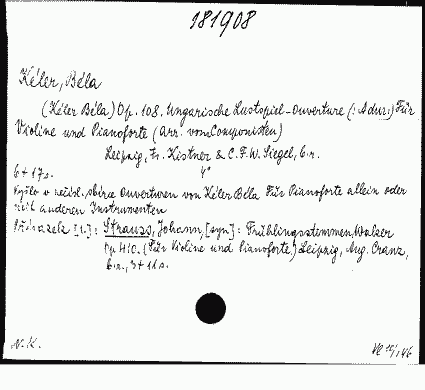 181908
Kéler, Béla
(Kéler Béla) Op. 108. Ungarische Lustspiel-Ouverture (: A dur:) Für
Violine und Pianoforte (Arr. vom Componisten)
Leipzig, Fr. Kistner & C. F. W. Siegel, b.r.
6 + 17 s. 4°
Vyšlo v necísl. sbírce Ouverturen von Kéler Béla Für Pianoforte allein oder
mit anderen Instrumenten
Přívazek [1.]: Strauss, Johann, [syn]: Frühlingsstimmen, Walzer
Op. 410. (Für Violine und Pianoforte.) Leipzig, Aug. Cranz,
b.r., 3 + 11 s.
N. K.